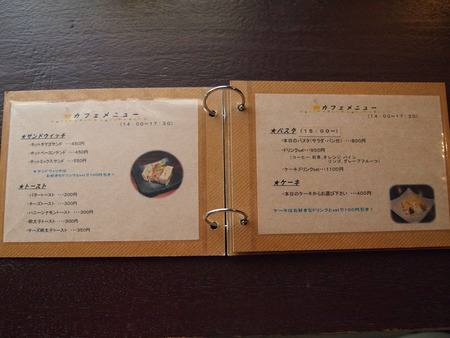 カフェメニュー
(14:00〜17:30)
★サンドウィッチ
・ホットタマゴサンド …450円
・ホットベーコンサンド …450円
・ホットミックスサンド …550円
★サンドウィッチは
お好きなドリンクとsetで100円引き！
★トースト
・バタートースト …200円
・チーズトースト …300円
・ハニーシナモントースト …300円
・明太子トースト …300円
・チーズ明太子トースト …350円
カフェメニュー
(14:00〜17:30)
★パスタ (15:00〜)
・本日のパスタ(サラダ・パン付) …800円
・ドリンクset…950円
(コーヒー 紅茶 オレンジ パイン
リンゴ グレープフルーツ)
・ケーキドリンクset…1100円
★ケーキ
・本日のケーキからお選び下さい …400円
ケーキはお好きなドリンクとsetで100円引き！